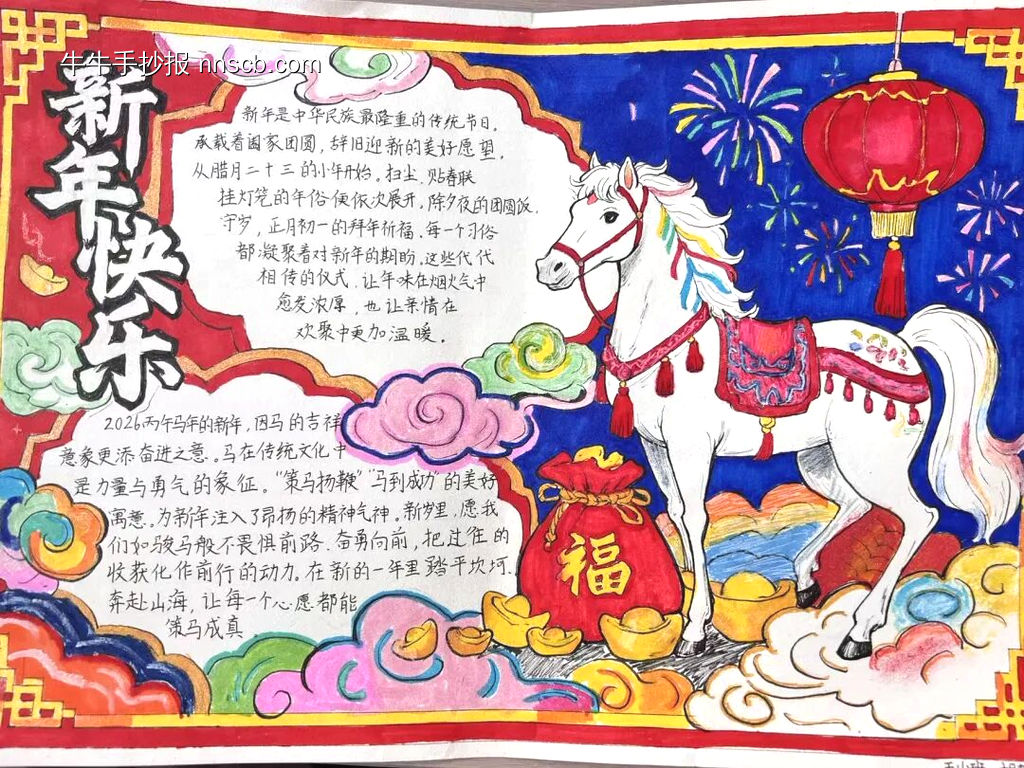 牛牛手抄报 nnscb.com
新年快乐
新年是中华民族最隆重的传统节日,
承载着阖家团圆,辞旧迎新的美好愿望,
从腊月二十三的小年开始,扫尘、贴春联
挂灯笼的年俗便依次展开,除夕夜的团圆饭,
守岁,正月初一的拜年祈福,每一个习俗
都凝聚着对新年的期盼,这些代代
相传的仪式,让年味在烟火气中
愈发浓厚,也让亲情在
欢聚中更加温暖。
2026丙午马年的新年,因马的吉祥
意象更添奋进之意。马在传统文化中
是力量与勇气的象征。“策马扬鞭”“马到成功”的美好
寓意。为新年注入了昂扬的精神气神,新岁里,愿我
们如骏马般不畏惧前路,奋勇向前,把过往的
收获化作前行的动力。在新的一年里踏平坎坷,
奔赴山海,让每一个心愿都能
策马成真
福